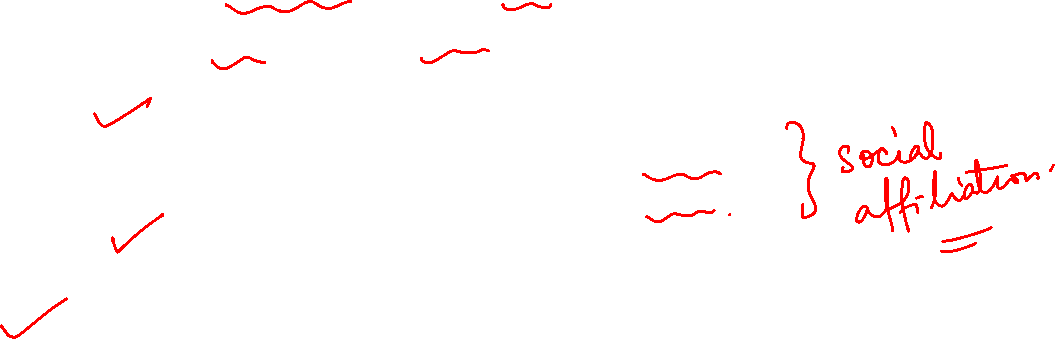 social
affiliation.